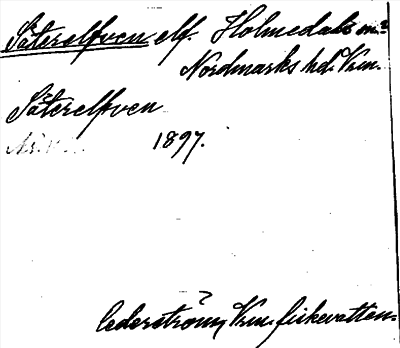 Säterelfven elf. Holmedals sn.
Nordmarks hd. Vrm.
Säterelfven
1897.
Cederström, Vrm. fiskevatten.